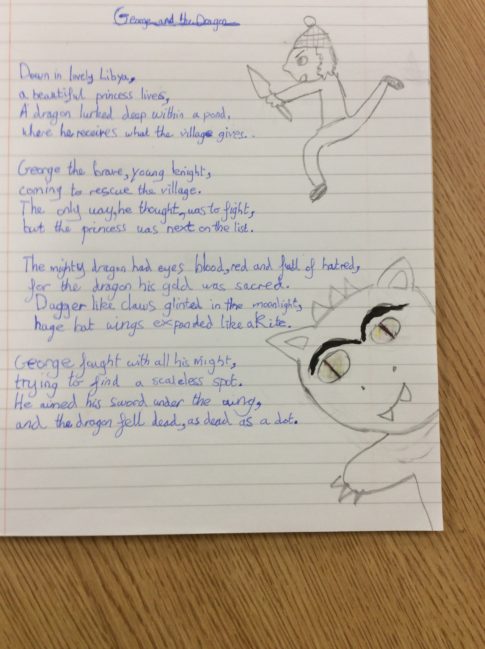 George and the Dragon
Down in lovely Libya,
a beautiful princess lives,
A dragon lurked deep within a pond.
where he receives what the village gives..
George the brave, young knight,
coming to rescue the village.
The only way, he thought, was to fight,
but the princess was next on the list.
The mighty dragon had eyes blood, red and full of hatred,
for the dragon his gold was sacred.
Dagger like claws glinted in the moonlight,
huge bat wings expanded like a Kite.
George fought with all his might,
trying to find a scaleless spot.
He aimed his sword under the wing,
and the dragon fell dead, as dead as a dot.